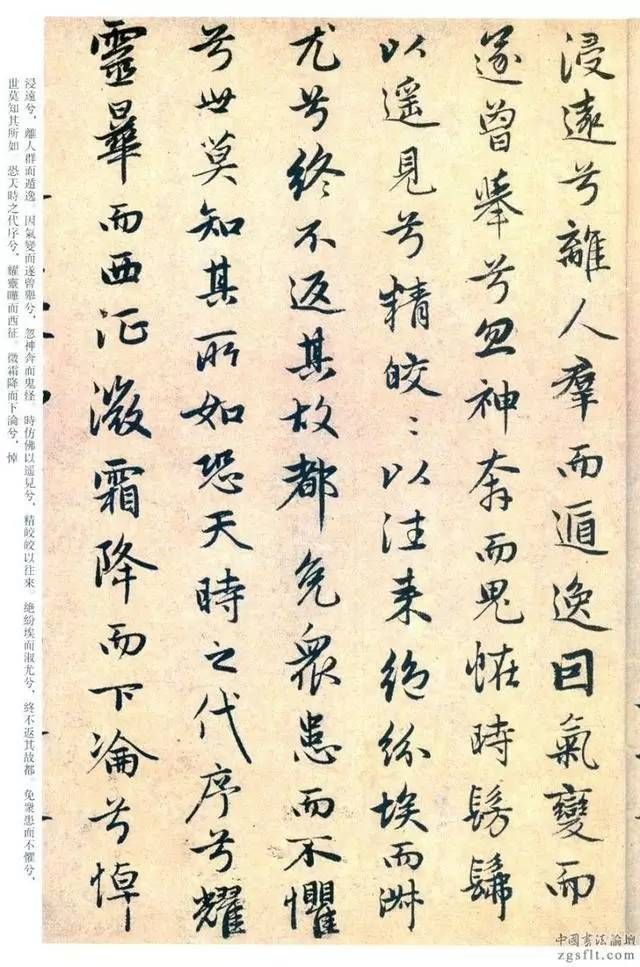 浸遠兮離人羣而遁逸因氣變而
遂曾舉兮忽神奔而鬼恠時髣髴
以遥見兮精皎〻以往来絶紛埃而淑
尤兮終不返其故都免衆患而不懼
兮世莫知其所如恐天時之代序兮耀
靈曄而西征微霜降而下淪兮悼
浸遠兮，離人群而遁逸 因氣變而遂曾舉兮，忽神奔而鬼怪 時仿佛以遥見兮，精皎皎以往來。絶紛埃而淑尤兮，終不返其故都。免衆患而不懼兮，
世莫知其所如 恐天時之代序兮，耀靈曄而西征。微霜降而下淪兮，悼
中國書法論壇
zgsflt.com